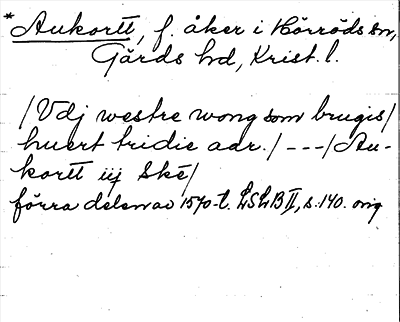 * Aukortt, f. åker i Hörröds sn,
Gärds hd, Krist. l.
/Vdj westre wong som brugis/
huert tridie aar./ ---/Au-
kortt iij Ske/
förra delen av 1570-t. LSLB II, s. 140. orig